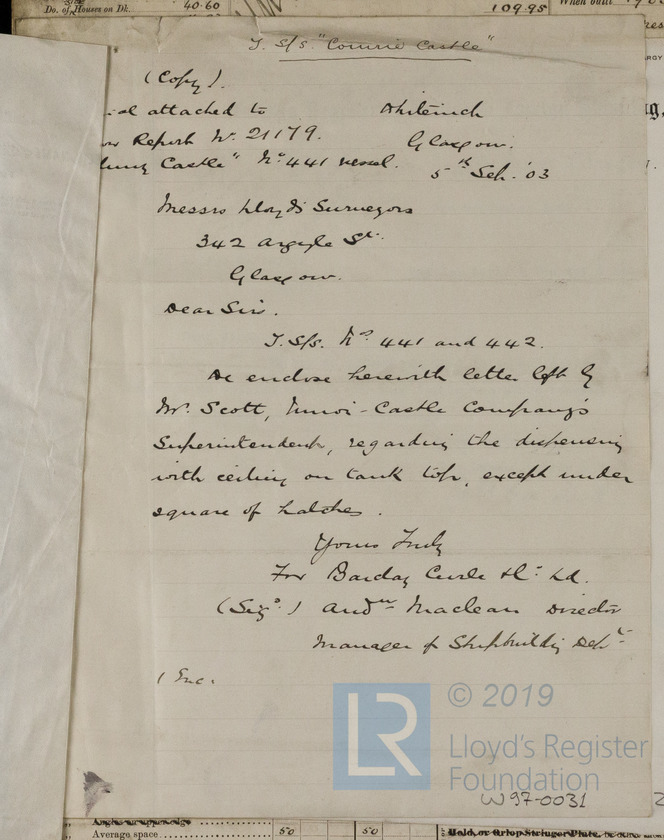 Do. of Houses on Dk. 40.60 109.95 When built
T. S/S. "Comrie Castle"
(Copy).
attached to Whiteinch
Report No. 21179. Glasgow.
Castle" No. 441 vessel. 5th Sep. '03
Messrs Lloyds Surveyors
342 Argyle St.
Glasgow.
Dear Sirs.
T. S/s. Nos 441 and 442.
We enclose herewith letter left by
Mr. Scott, Union-Castle Company's
Superintendent, regarding the dispensing
with ceiling on tank top, except under
square of hatches.
Yours Truly
For Barclay Curle & Co. Ld.
(Sigd.) Andw Maclean Director
Manager of Shipbuilding Dept.
1 Enc:
© 2019
LR
Lloyd's Register
Foundation
W97-0031
Average space 50 50 Hold, or Orlop Stringer Plate,